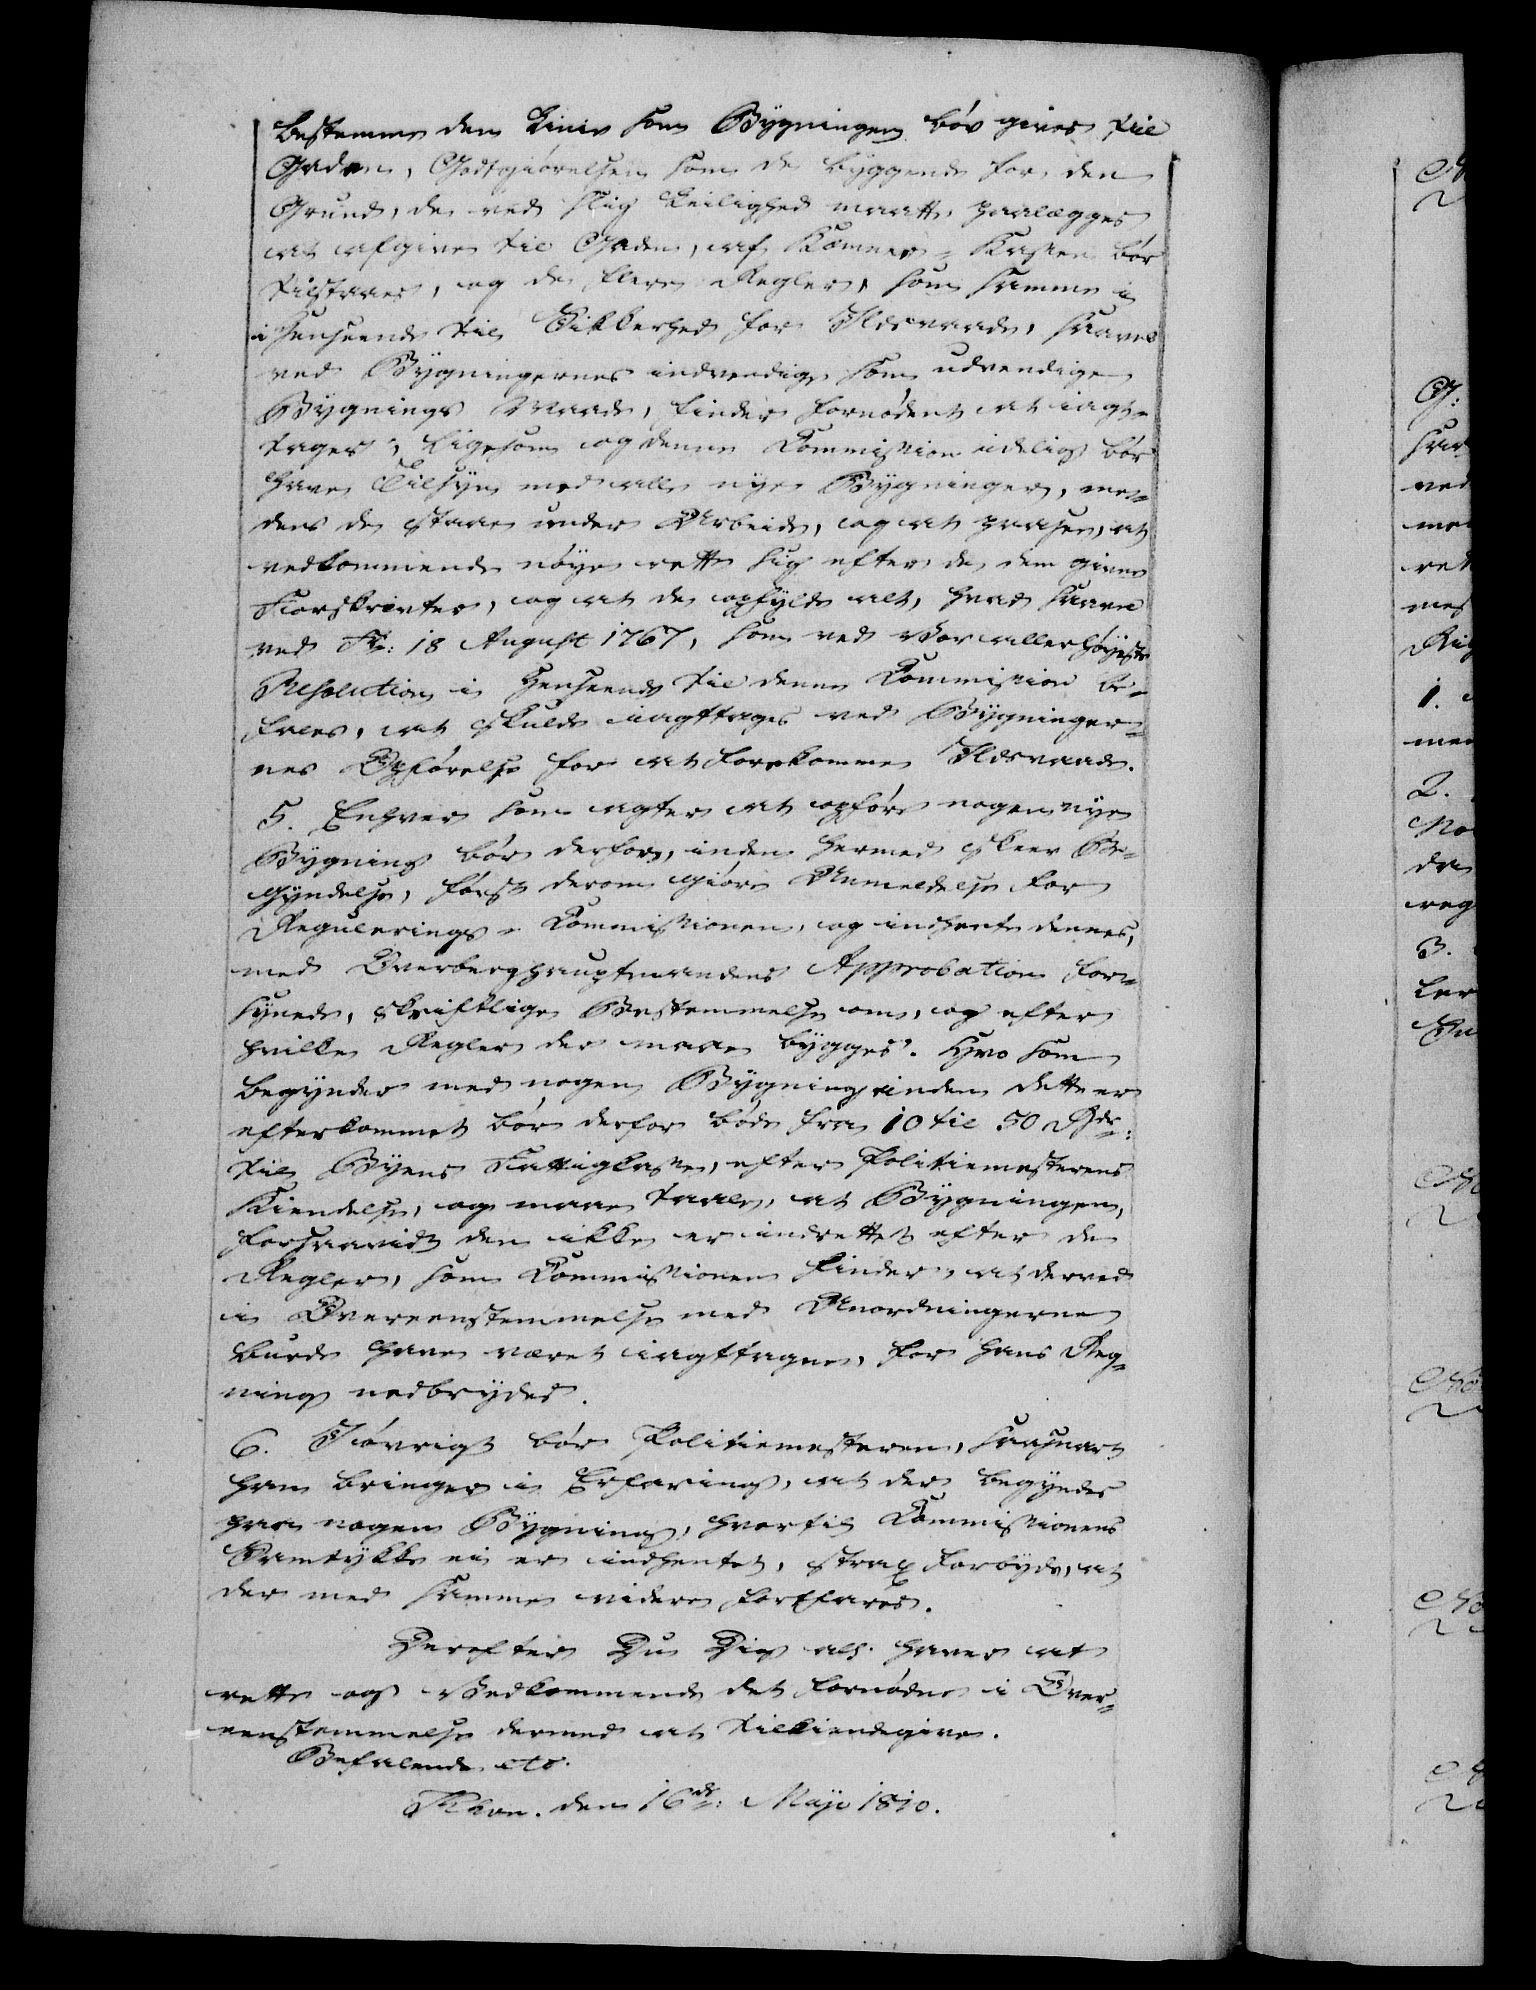 bestemme den Linie som Bygningen bør gives til
Gaden, Godtgiørelsen som de byggende for den
Grund, de ved slig Leilighed maatte paalægges
at afgive til Gaden, af Kæmner-Kassen bør
tilstaaes, og de flere Regler, som samme i
i Henseende til Sikkerhed for Ildsvaade, saavel
ved Bygningernes indvendige som udvendige
Bygnings Maade, finder fornødent at iagt-
tages; ligesom og denne Kommission idelig bør
have Tilsyn med alle nye Bygninger, me-
dens de staae under Arbeide, og at paasee, at
vedkommende nøye rette sig efter de dem givne
Forskrivter, og at de opfylde alt, hvad saavel
ved Fr: 18 August 1767, som ved Vor allerhøyeste
Resolution i Henseende til denne Kommission be-
fales, at skulde iagttages ved Bygninger-
nes Opførelse for at forekomme Ildsvaade.
5. Enhver som agter at opføre nogen nye
Bygning bør derfor, inden hermed skeer Be-
gyndelse, først derom giøre Anmeldelse for
Regulerings-Kommissionen, og indhente dennes,
med Overberghauptmandens Approbation for-
synede, skriftlige Bestemmelse om, og efter
hvilke Regler der maae bygges. Hvo som
begynder med nogen Bygning inden dette er
efterkommet bør derfor bøde fra 10 til 50 Rdr:
til Byens Fattigkasse, efter Politiemesterens
Kiendelse, og maae taale, at Bygningen,
forsaavidt den ikke er indrettet efter de
Regler, som Kommissionen finder, at derved
i Overeenstemmelse med Anordningerne
burde have været iagttagne, for hans Reg-
ning nedbrydes.
6. Iøvrigt bør Politiemesteren, saasnart
han bringer i Erfaring, at der begyndes
paa nogen Bygning, hvortil Kommissionens
Samtykke ei er indhentet, strax forbyde, at
der med samme videre fortfares.
Derefter Du Dig als. haver at
rette og Vedkommende det fornødne i Over-
eenstemmelse dermed at tilkiendegive.
Befalende etc.
Khavn. den 16de: Maji 1810.